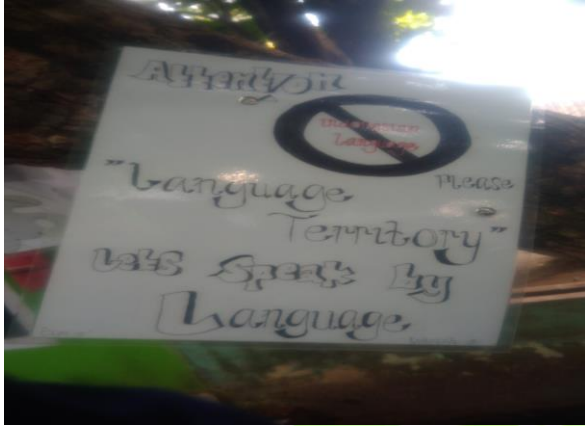 Attention
Language
Please
"Language
Territory"
Let's Speak by
Language